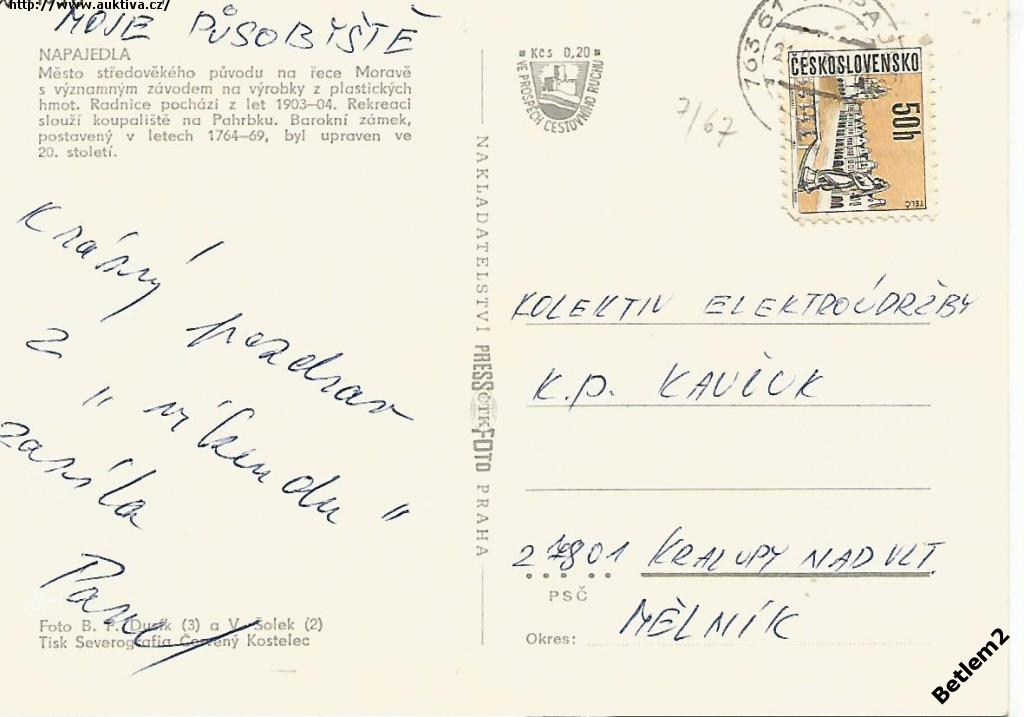 http://www.auktiva.cz/
MOJE PŮSOBYŠTĚ
NAPAJEDLA
Město středověkého původu na řece Moravě
s významným závodem na výrobky z plastických
hmot. Radnice pochází z let 1903—04. Rekreaci
slouží koupaliště na Pahrbku. Barokní zámek,
postavený v letech 1764—69, byl upraven ve
20. století.
Krásný pozdrav
z "víkendu"
zasílá
Foto B. F. Dusík (3) a V. Šolek (2)
Tisk Severografia Červený Kostelec
NAKLADATELSTVÍ PRESSFOTO PRAHA
ČTK
Kčs 0,20
VE PROSPĚCH CESTOVNÍHO RUCHU
7/67
763 61
ČESKOSLOVENSKO
50h
TELČ
KOLEKTIV ELEKTROÚDRŽBY
K.P. KAUČUK
27801 KRALUPY NAD VLT.
PSČ
Okres: MĚLNÍK
Betlem2